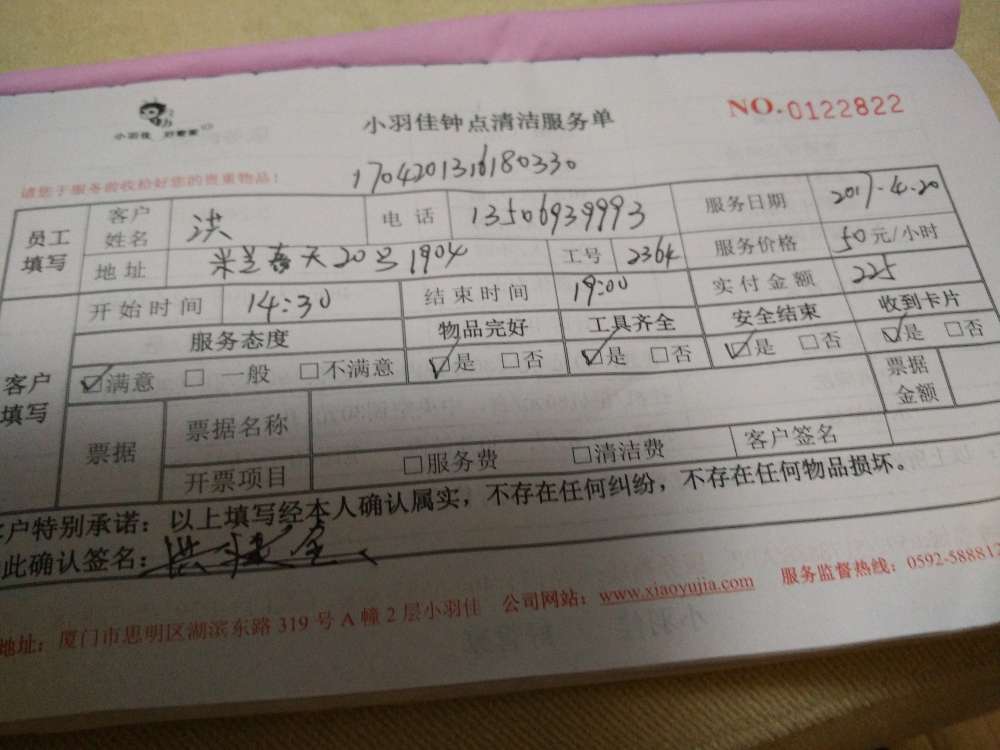 小羽佳 好管家
小羽佳钟点清洁服务单
NO.0122822
请您于服务前收拾好您的贵重物品!
1704201316180330
员工填写 客户姓名 洪 电话 13506939993 服务日期 2017.4.20
地址 米兰春天20号1904 工号 2364 服务价格 50元/小时
客户填写 开始时间 14:30 结束时间 19:00 实付金额 225
服务态度 物品完好 工具齐全 安全结束 收到卡片
☑满意 □一般 □不满意 ☑是 □否 ☑是 □否 ☑是 □否 ☑是 □否
票据 票据名称 票据金额
开票项目 □服务费 □清洁费 客户签名
客户特别承诺:以上填写经本人确认属实,不存在任何纠纷,不存在任何物品损坏。
此确认签名:洪
地址:厦门市思明区湖滨东路 319 号 A 幢 2 层小羽佳 公司网站:www.xiaoyujia.com 服务监督热线:0592-588812